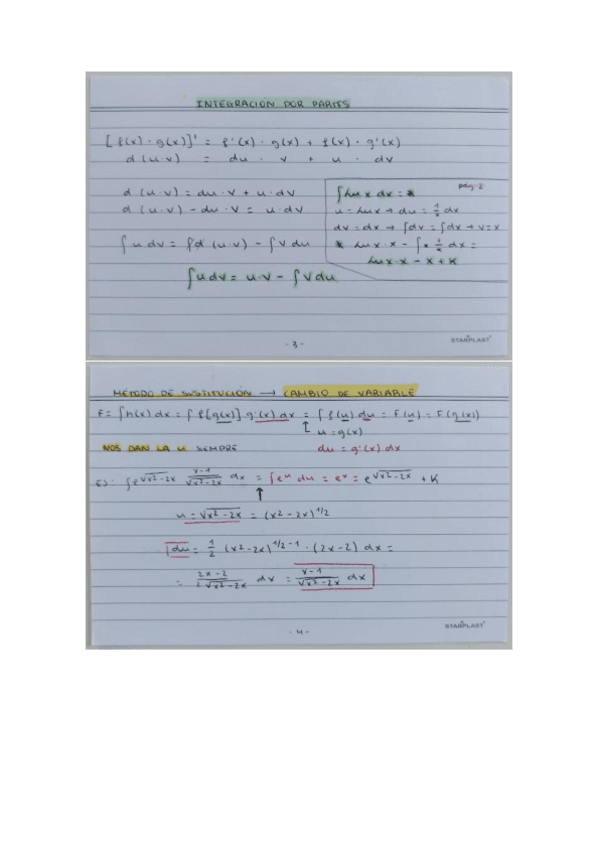 INTEGRACIÓN POR PARTES
[f(x) · g(x)]' = f'(x) · g(x) + f(x) · g'(x)
d (u·v) = du · v + u · dv
d (u·v) = du · v + u · dv
d (u·v) - du · v = u · dv
∫u dv = ∫d (u·v) - ∫v du
∫u dv = u·v - ∫v du
pág-2
∫lnx dx = *
u = lnx → du = 1/x dx
dv = dx → ∫dv = ∫dx → v=x
* lnx·x - ∫x 1/x dx =
lnx·x - x + K
- 3 -
STARPLAST
MÉTODO DE SUSTITUCIÓN → CAMBIO DE VARIABLE
F = ∫h(x) dx = ∫f[g(x)] g'(x) dx = ∫f(u) du = F(u) = F(g(x))
u = g(x)
NOS DAN LA u SIEMPRE du = g'(x) dx
EJ: ∫e^√x²-2x x-1/√x²-2x dx = ∫e^u du = e^x = e^√x²-2x + K
u = √x²-2x = (x²-2x)^1/2
du = 1/2 (x²-2x)^1/2-1 · (2x-2) dx =
= 2x-2/2√x²-2x dx = x-1/√x²-2x dx
- 4 -
STARPLAST